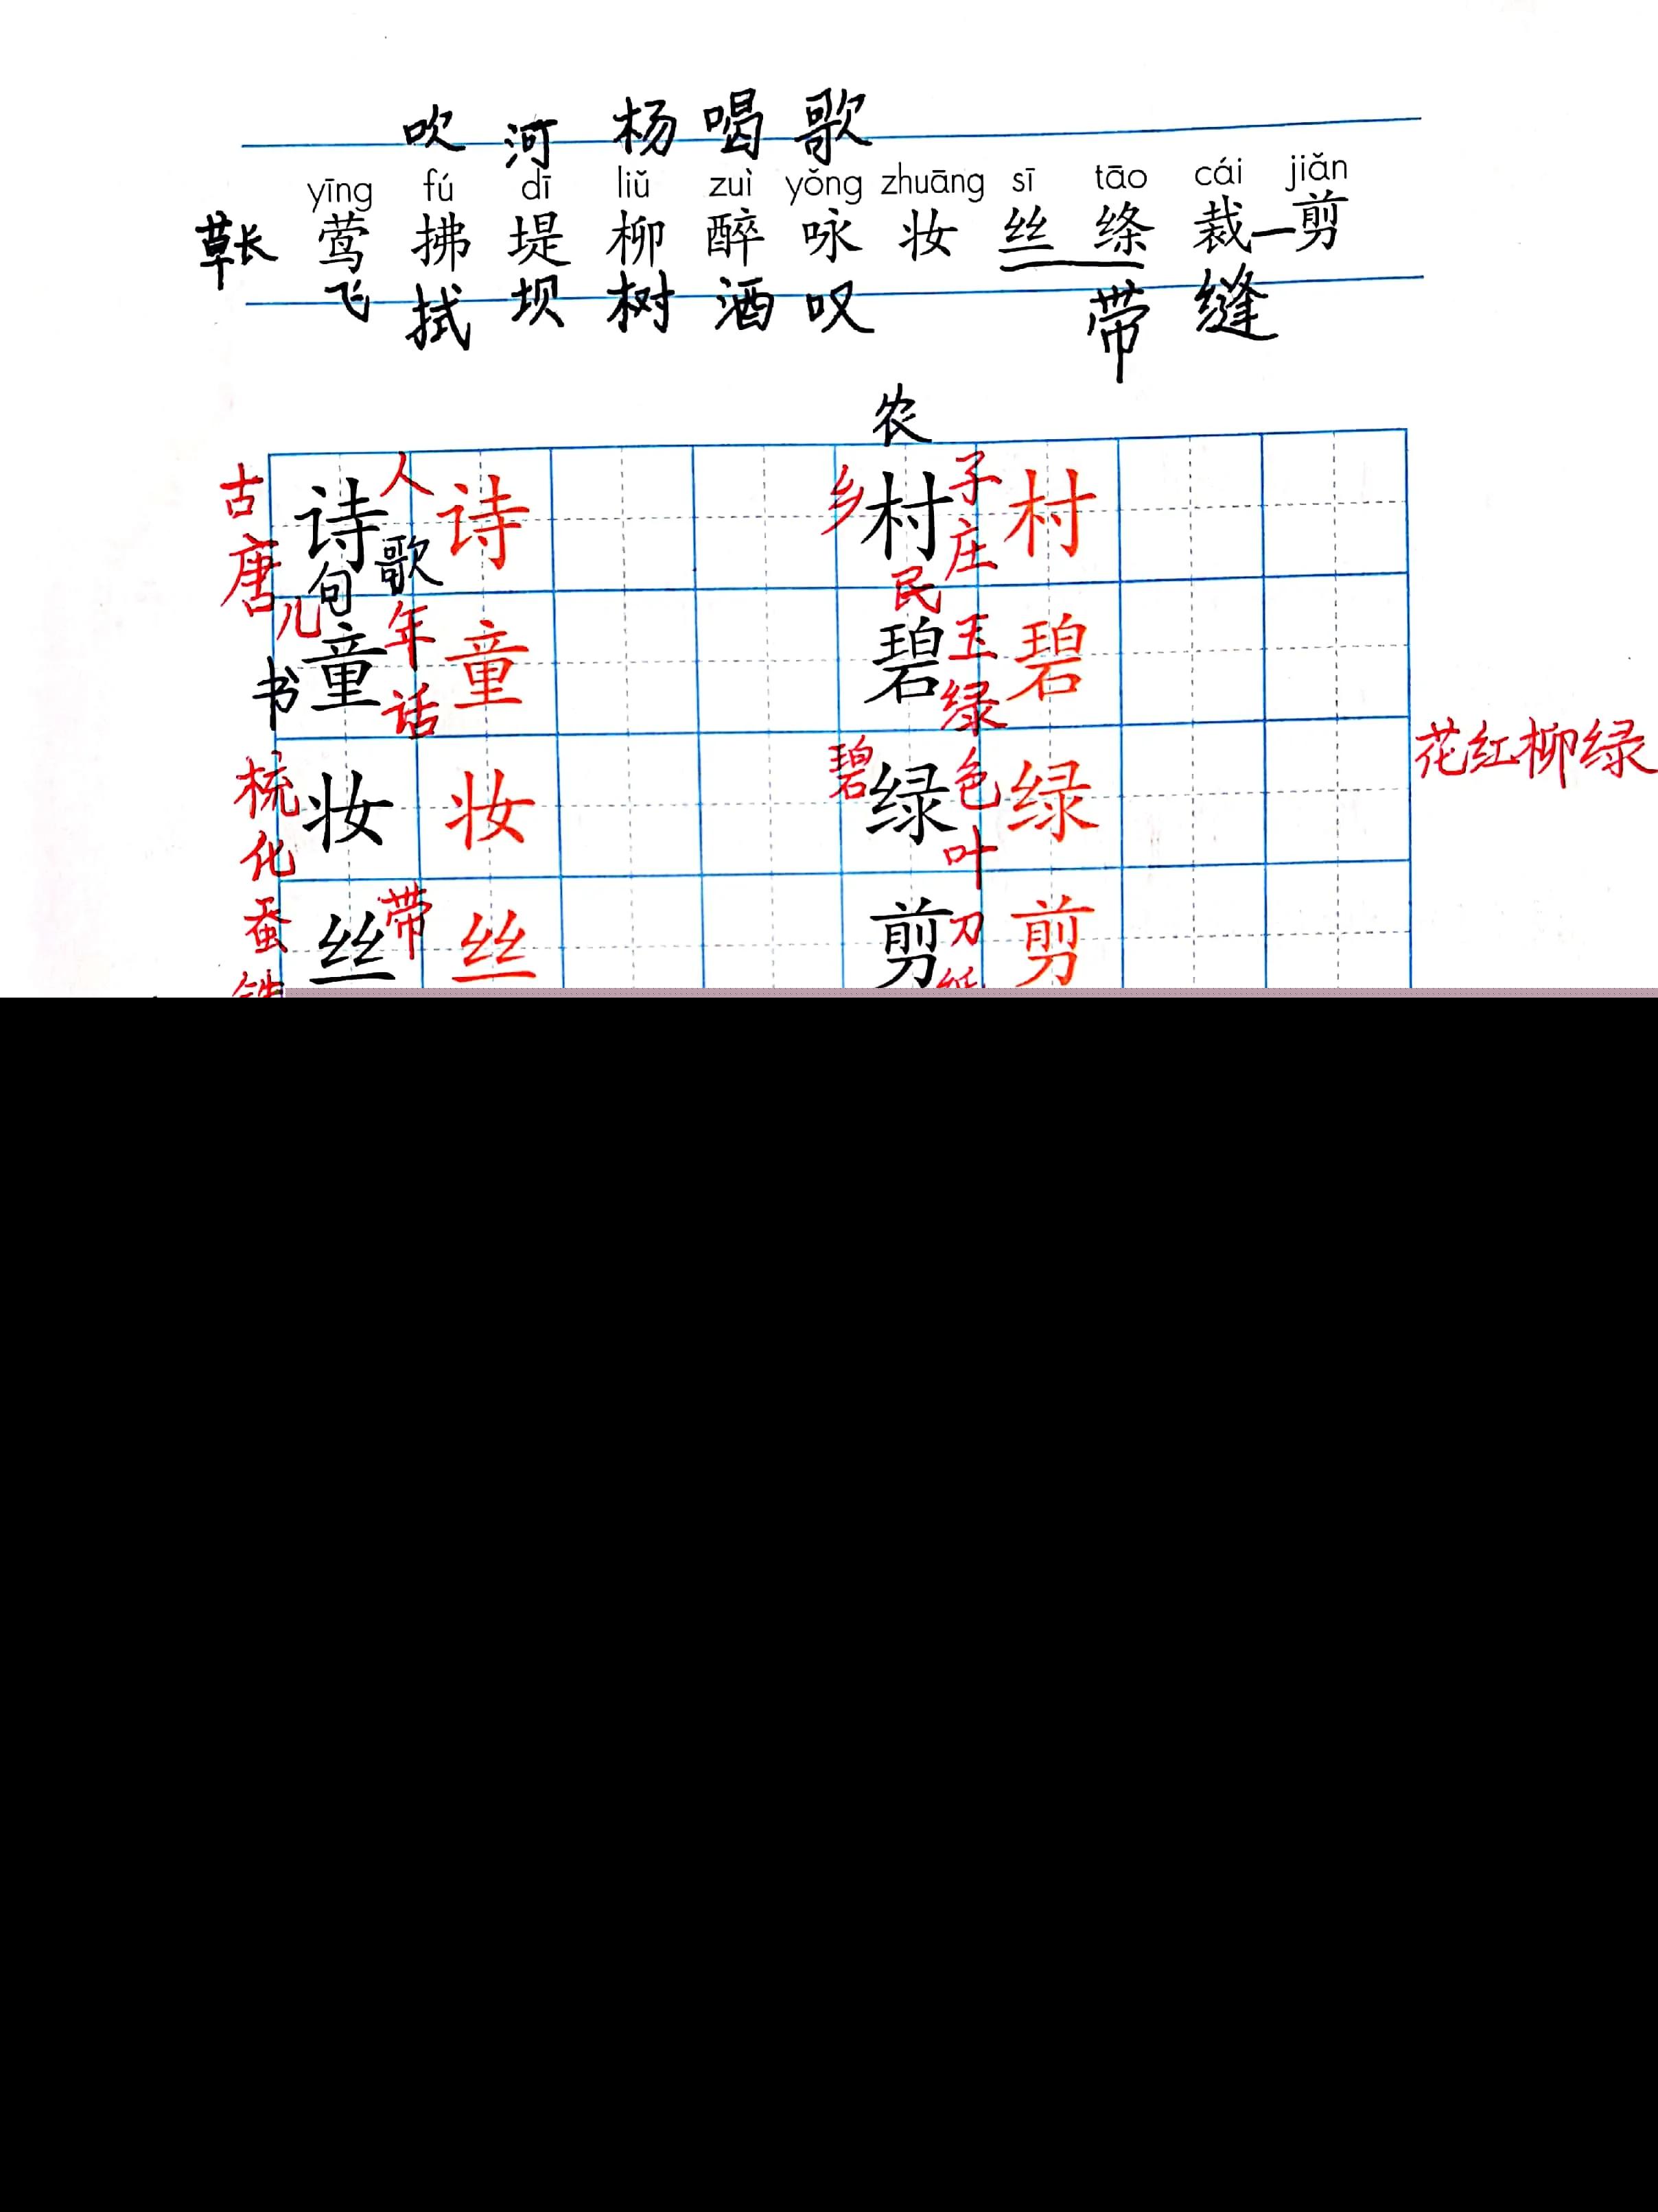 吹 河 杨 喝 歌
yīng fú dī liǔ zuì yǒng zhuāng sī tāo cái jiǎn
草长 莺 拂 堤 柳 醉 咏 妆 丝 绦 裁 一 剪
飞 拭 坝 树 酒 叹 带 缝
农
古 诗 人 诗 乡 村 子 村
唐 句 歌 民 庄
儿 童 年 童 碧 玉 碧
书 话 绿
梳 妆 妆 碧 绿 色 绿 花红柳绿
化 叶
蚕 丝 带 丝 剪 刀 剪